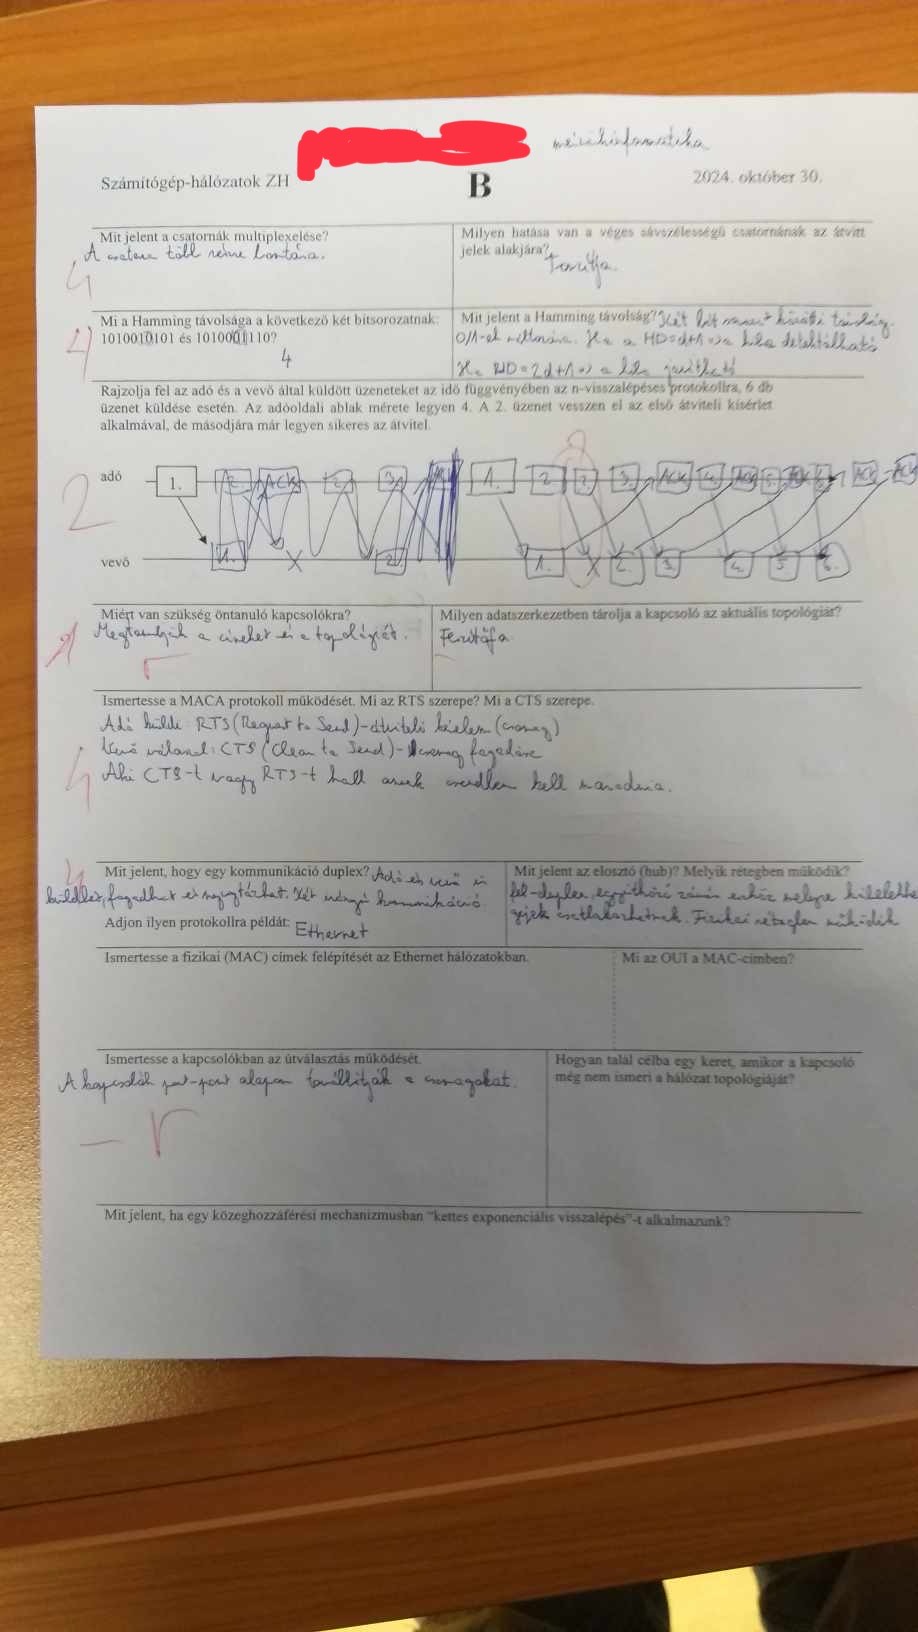 mérnökinformatika
Számítógép-hálózatok ZH
B
2024. október 30.
Mit jelent a csatornák multiplexelése?
A csatorna több részre bontása.
4
Milyen hatása van a véges sávszélességű csatornának az átvitt
jelek alakjára?
Torzítja.
Mi a Hamming távolsága a következő két bitsorozatnak:
1010010101 és 1010001110?
4
4
Mit jelent a Hamming távolság? Két bit sorozat közötti távolság.
0/1-ek Ha a HD=d+1 => a hiba detektálható
Ha HD=2d+1 => a hiba javítható
Rajzolja fel az adó és a vevő által küldött üzeneteket az idő függvényében az n-visszalépéses protokollra, 6 db
üzenet küldése esetén. Az adóoldali ablak mérete legyen 4. A 2. üzenet vesszen el az első átviteli kísérlet
alkalmával, de másodjára már legyen sikeres az átvitel.
2
adó 1. 2. ACK 2. 3. 1. 2 2. 3. ACK 4. ACK 5. ACK 6. ACK ACK
vevő 1. X 2. 1. X 2. 3. 4. 5. 6.
Miért van szükség öntanuló kapcsolókra?
Megtanulják a címeket és a topológiát.
Milyen adatszerkezetben tárolja a kapcsoló az aktuális topológiát?
Feszítőfa
Ismertesse a MACA protokoll működését. Mi az RTS szerepe? Mi a CTS szerepe.
Adó küldi: RTS (Request to Send) - átviteli kérelem (csomag)
Vevő válaszol: CTS (Clear to Send) - csomag fogadásra
Aki CTS-t vagy RTS-t hall annak csendben kell maradnia.
4
4
Mit jelent, hogy egy kommunikáció duplex? Adó és vevő is
küldhet, fogadhat és nyugtázhat. Két irányú kommunikáció.
Adjon ilyen protokollra példát: Ethernet
Mit jelent az elosztó (hub)? Melyik rétegben működik?
fél-duplex, zónán melyre
gépek csatlakozhatnak. Fizikai rétegben működik
Ismertesse a fizikai (MAC) címek felépítését az Ethernet hálózatokban.
Mi az OUI a MAC-címben?
Ismertesse a kapcsolókban az útválasztás működését.
A kapcsolók port-port alapon továbbítják a csomagokat.
Hogyan talál célba egy keret, amikor a kapcsoló
még nem ismeri a hálózat topológiáját?
Mit jelent, ha egy közeghozzáférési mechanizmusban "kettes exponenciális visszalépés"-t alkalmazunk?